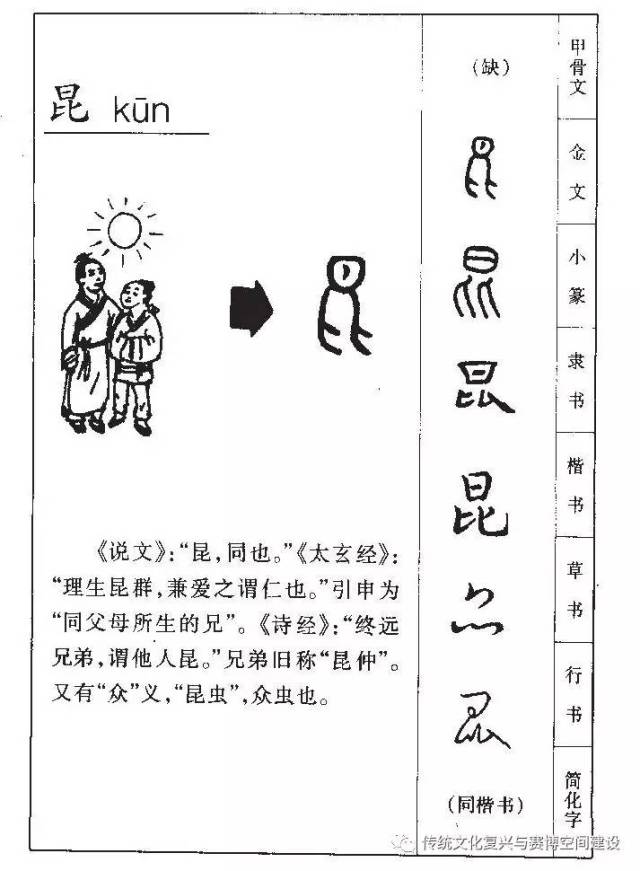 昆 kūn
《说文》：“昆，同也。”《太玄经》：
“理生昆群，兼爱之谓仁也。”引申为
“同父母所生的兄”。《诗经》：“终远
兄弟，谓他人昆。”兄弟旧称“昆仲”。
又有“众”义，“昆虫”，众虫也。
（缺）
甲骨文
金文
小篆
昆
隶书
昆
楷书
草书
行书
（同楷书）
简化字
传统文化复兴与赛博空间建设